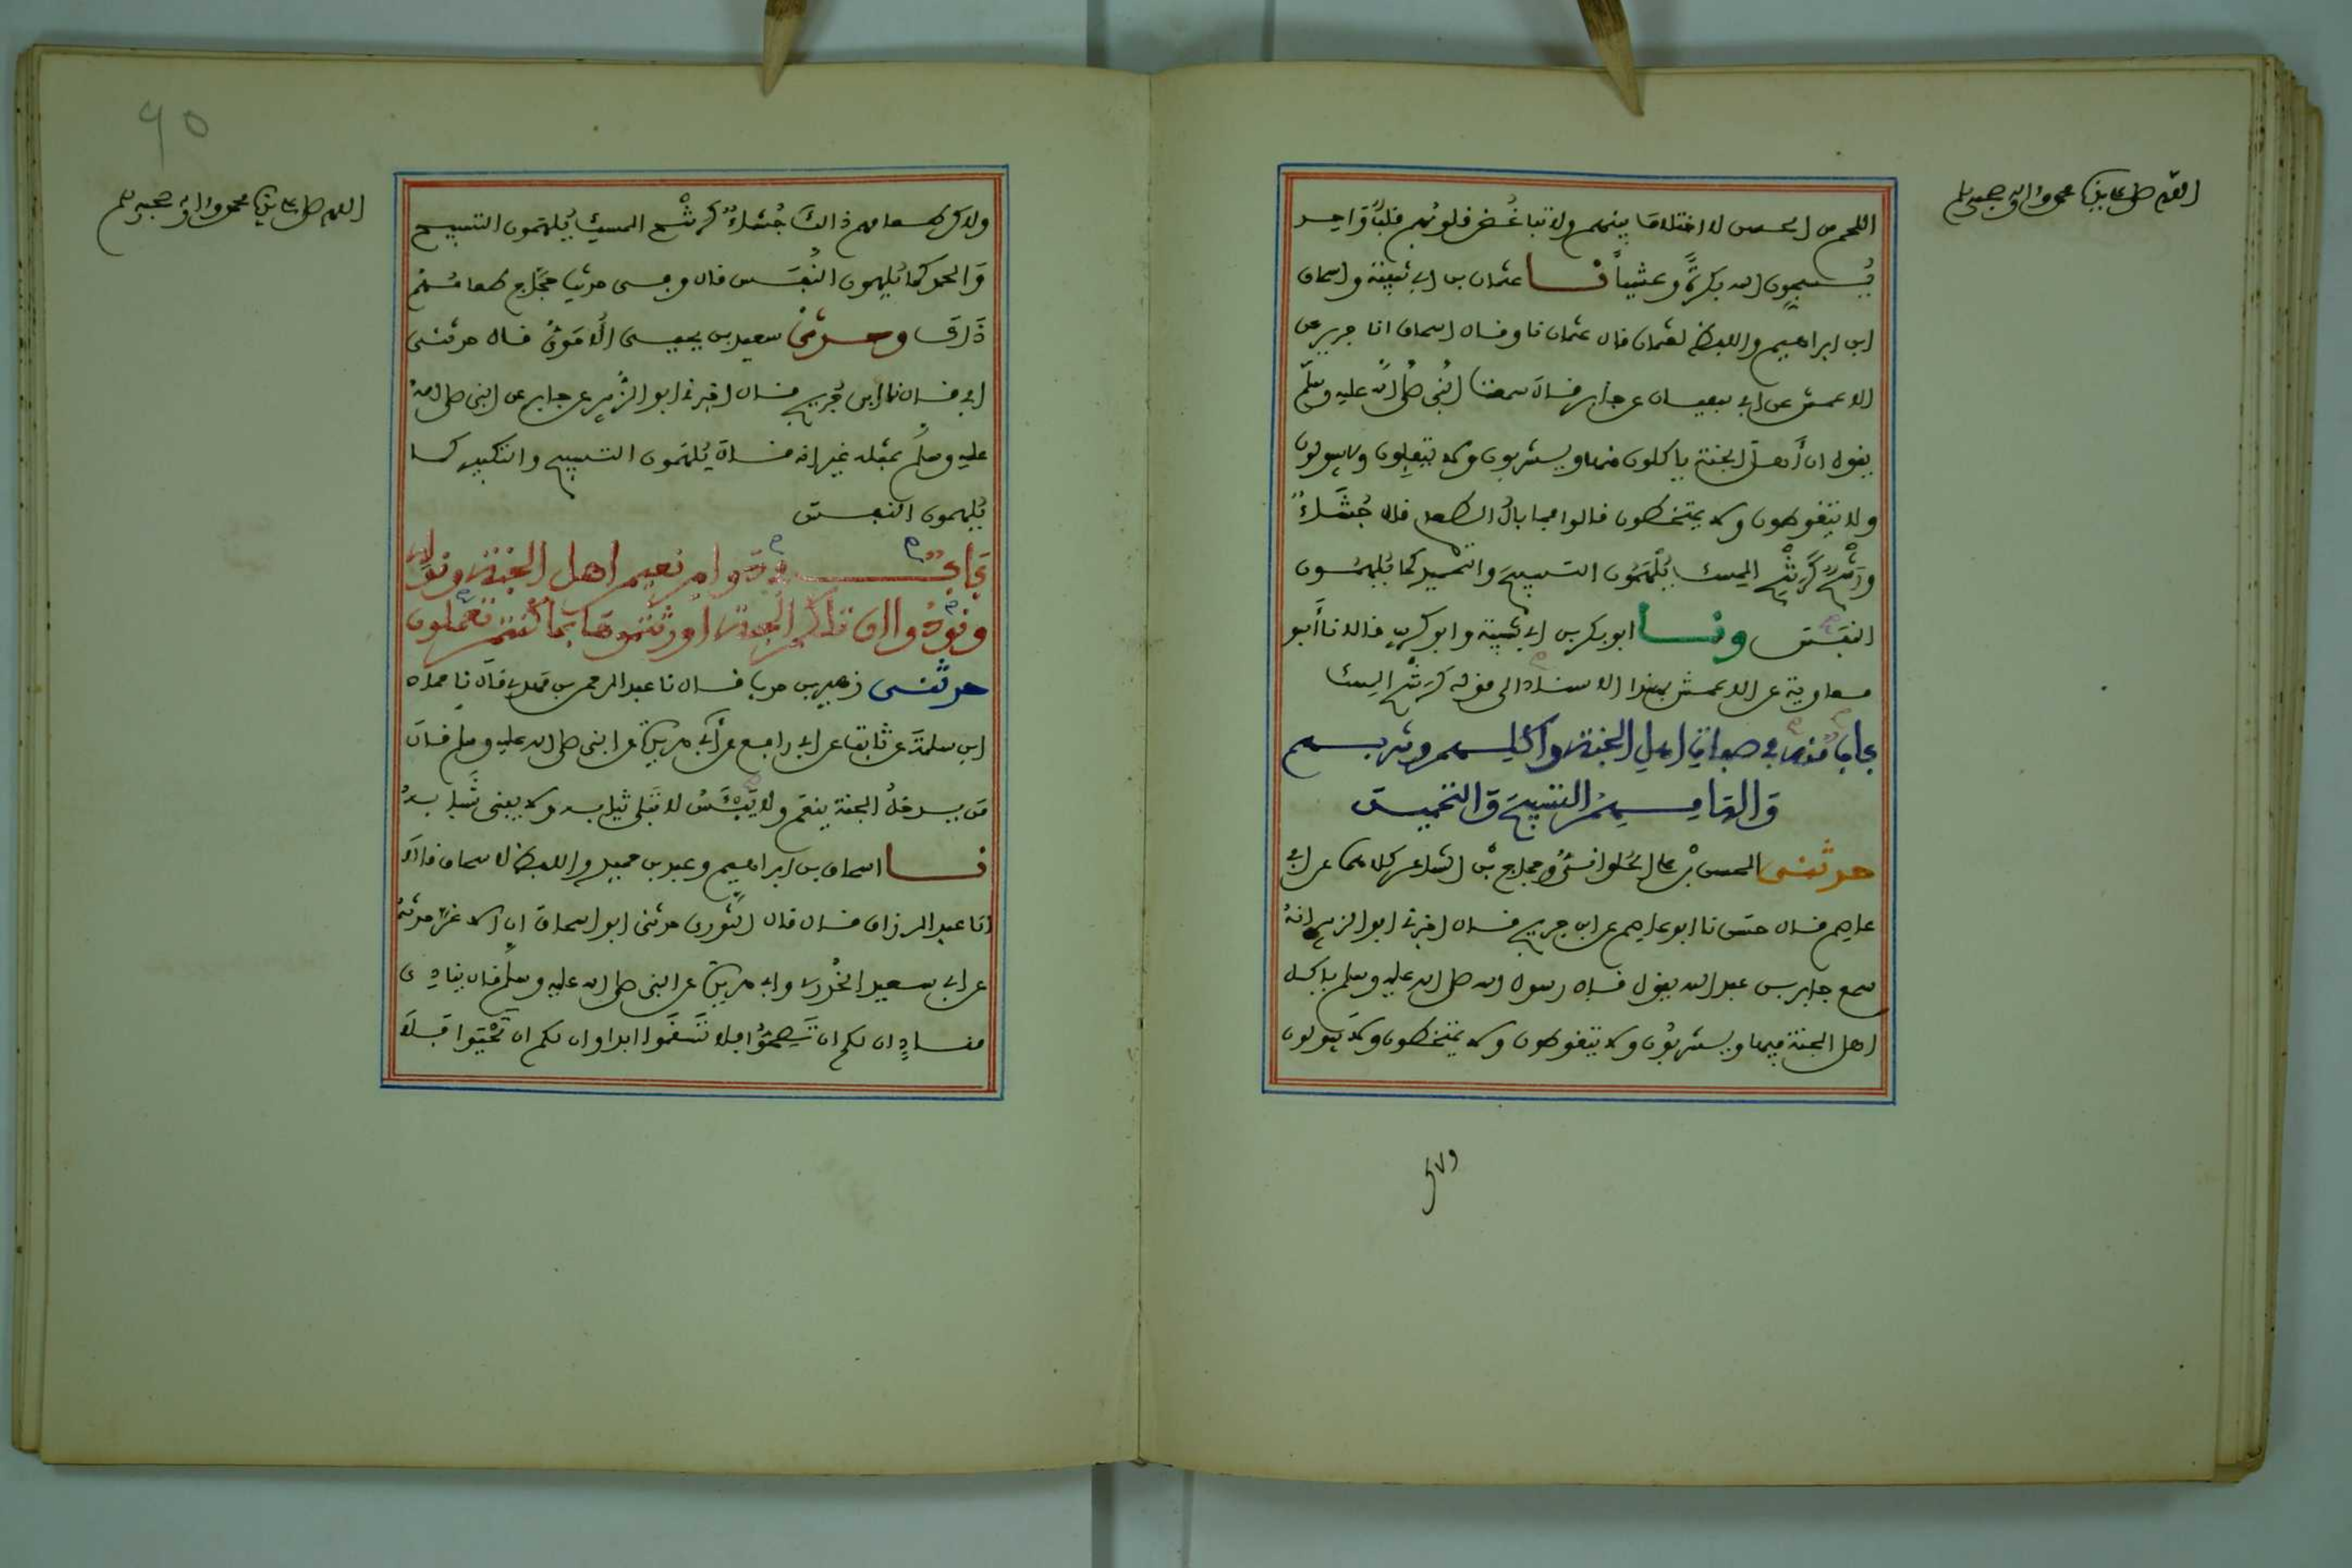 اللهم صل على سيدنا محمد وءاله وصحبه وسلم
اللحم من الحسن لا اختلاف بينهم ولا تباغُض قلوبُهم قلبٌ وَاحد
يُسبحون الله بكرةً وعشيّاً نا عثمان بن ابي شيبة واسحاق
ابن ابراهيم واللفظ لعثمان قال عثمان نا وقال اسحاق انا جرير عن
الاعمش عن ابي سفيان عن جابر قال سمعت النبي صلى الله عليه وسلم
يقول ان أهل الجنة ياكلون فيها ويشربون ولا يتفلون ولا يبولون
ولا يتغوطون ولا يمتخطون قالوا فما بالُ الطعام قال جُشَاءٌ
ورَشْحٌ كَرَشْحِ المسك يُلْهَمُون التسبيحَ والتحميد كما يُلهمُون
النفَسَ ونا ابو بكر بن ابي شيبة وابو كريب قالا نا أبو
معاوية عن الاعمش بهذا الاسناد الى قوله كرشح المسك
بابٌ منه في صفات اهل الجنة واكلهم وشربهم
وَالهامِهِمُ التسبيحَ وَالتحميدَ
حدثني الحسن بْن علي الحُلوانيُّ وحجاج بْن الشاعر كلاهما عن ابي
عاصم قال حسن نا ابو عاصم عن ابن جريج قال اخبرني ابو الزبير انهُ
سمع جابر بن عبد الله يقول قال رسول الله صلى الله عليه وسلم ياكل
اهل الجنة فيها ويشربُون ولا يتغوطون ولا يمتخطون ولا يبولون
ولا
90
اللهم صل على سيدنا محمد وءاله وصحبه وسلم
ولاكن طعامهم ذالكَ جُشاءٌ كرشْح المسك يُلهَمون التسبيح
وَالحمد كما يُلهمون النفَس قال وفي حديث حجاج طعامُهمْ
ذَالكَ وحدثني سعيد بن يحيى الأُمَوِيُّ قال حدثني
ابي قال نا ابن جُريج قال اخبرني ابو الزُّبير عن جابر عن النبي صلى اللهُ
عليه وسلم بمثله غير انه قال يُلهَمون التسبيح والتكبير كما
يُلهمون النفس
بَابٌ في دوام نعيم اهل الجنة وقولِه
ونُودُوا ان تلكم الجنة اورثتموها بمَا كنتم تعملون
حدثني زهير بن حرب قال نا عبد الرحمن بن مهدي قال نا حماد
ابن سلمةَ عن ثابت عن ابي رافع عن أبي هريرة عن النبي صلى الله عليه وسلم قال
مَن يدخلُ الجنة ينعَم ولا يَبْئَسُ لا تَبلى ثيابه ولا يفنى شَبابهُ
نا اسحاق بن ابراهيم وعبد بن حميد واللفظ لاسحاق قالا
انا عبد الرزاق قال قال الثَّوري حدثني ابو اسحاق ان الاغرَّ حدثهُ
عن ابي سعيد الخُدري وابي هريرة عن النبي صلى الله عليه وسلم قال ينادِي
منادٍ ان لكم ان تَصِحُّوا فلا تَسْقَمُوا ابدا وان لكم ان تَحْيَوا فلَا